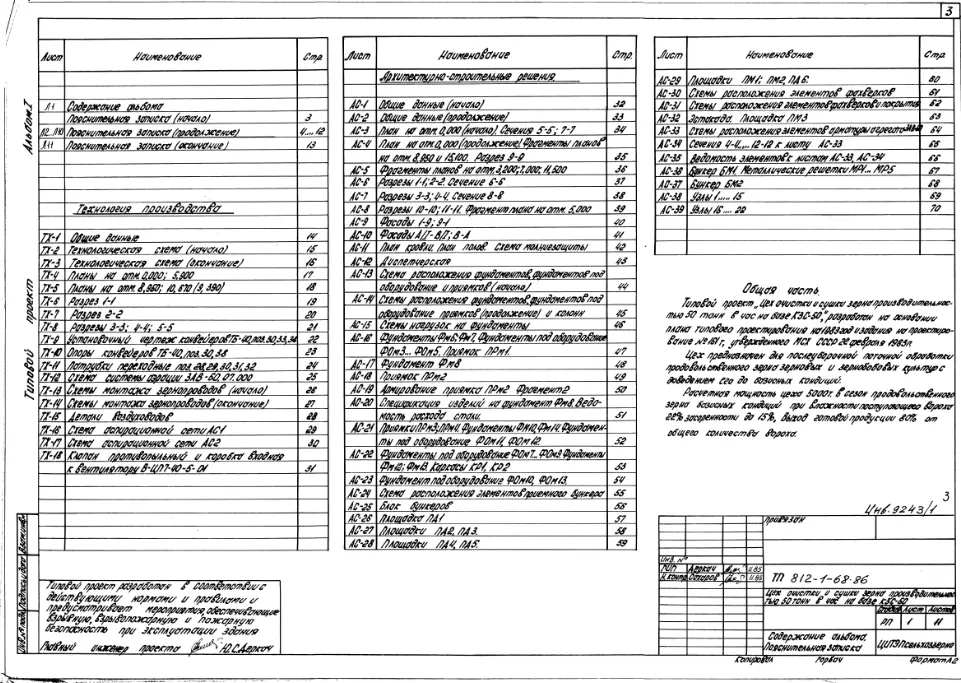 3
Альбом I
Типовой проект
Лист Наименование Стр.
Л1 Содержание альбома
Пояснительная записка (начало) 3
Л2...Л10 Пояснительная записка (продолжение) 4...12
Л11 Пояснительная записка (окончание) 13
Технология производства
ТХ-1 Общие данные 14
ТХ-2 Технологическая схема (начало) 15
ТХ-3 Технологическая схема (окончание) 16
ТХ-4 Планы на отм. 0,000; 5,900 17
ТХ-5 Планы на отм. 8,950; 10,670 (9,390) 18
ТХ-6 Разрез 1-1 19
ТХ-7 Разрез 2-2 20
ТХ-8 Разрезы 3-3; 4-4; 5-5 21
ТХ-9 Установочный чертеж конвейеров ТБ-40, поз.30,33,38 22
ТХ-10 Опоры конвейеров ТБ-40, поз. 30, 38 23
ТХ-11 Патрубки переходные поз. 28,29,30,31,32 24
ТХ-12 Схема системы аэрации ЗАВ-60.07.000 25
ТХ-13 Схемы монтажа зернопроводов (начало) 26
ТХ-14 Схемы монтажа зернопроводов (окончание) 27
ТХ-15 Детали воздуховодов 28
ТХ-16 Схема аспирационной сети АС1 29
ТХ-17 Схема аспирационной сети АС2 30
ТХ-18 Клапан противопыльный и коробка входная
к вентилятору В-ЦП7-40-5-01 31
Типовой проект разработан в соответствии с
действующими нормами и правилами и
предусматривает мероприятия, обеспечивающие
взрывную, взрывопожарную и пожарную
безопасность при эксплуатации здания
Главный инженер проекта Ю.С.Деркач
Лист Наименование Стр.
Архитектурно-строительные решения.
АС-1 Общие данные (начало) 32
АС-2 Общие данные (продолжение) 33
АС-3 План на отм. 0,000 (начало). Сечения 5-5; 7-7 34
АС-4 План на отм. 0,000 (продолжение) Фрагменты планов
на отм. 8,950 и 15,100. Разрез 9-9 35
АС-5 Фрагменты планов на отм. 3,200; 7,000; 11,500 36
АС-6 Разрезы 1-1; 2-2. Сечение 6-6 37
АС-7 Разрезы 3-3; 4-4. Сечение 8-8 38
АС-8 Разрезы 10-10; 11-11. Фрагмент плана на отм. 5,000 39
АС-9 Фасады 1-9; 9-1 40
АС-10 Фасады А/Г-В/Г; В-А 41
АС-11 План кровли, план полов. Схема молниезащиты 42
АС-12 Диспетчерская 43
АС-13 Схема расположения фундаментов, фундаментов под
оборудование и приямков (начало) 44
АС-14 Схемы расположения фундаментов, фундаментов под
оборудование приямков (продолжение) и колонн 45
АС-15 Схемы нагрузок на фундаменты 46
АС-16 Фундаменты Фм6; Фм7. Фундаменты под оборудование
ФОм3... ФОм5. Приямок ПРм1. 47
АС-17 Фундамент Фм8 48
АС-18 Приямок ПРм2 49
АС-19 Армирование приямка ПРм2 Фрагмент 2 50
АС-20 Спецификация изделий на фундамент Фм8. Ведо-
мость расхода стали. 51
АС-21 Приямки ПРм3; ПРм4. Фундаменты ФМ10, Фм14. Фундамен-
ты под оборудование ФОм11, ФОм12. 52
АС-22 Фундаменты под оборудование ФОм7... ФОм9 Фундаменты
Фм12; Фм13. Каркасы КР1, КР2 53
АС-23 Фундамент под оборудование ФОм10, ФОм13. 54
АС-24 Схема расположения элементов приемного бункера 55
АС-25 Блок бункеров 56
АС-26 Площадка ПА1 57
АС-27 Площадки ПА2, ПА3. 58
АС-28 Площадки ПА4, ПА5. 59
Лист Наименование Стр.
АС-29 Площадки ПМ1; ПМ2, ПА6. 60
АС-30 Схемы расположения элементов фахверков 61
АС-31 Схемы расположения элементов фахверков и покрытия 62
АС-32 Эстакада. Площадка ПМ3 63
АС-33 Схемы расположения элементов арматуры агрегата 64
АС-34 Сечения 4-4... 12-12 к листу АС-33 65
АС-35 Ведомость элементов к листам АС-33, АС-34 66
АС-36 Бункер БМ1. Металлические решетки МР1... МР5 67
АС-37 Бункер БМ2 68
АС-38 Узлы 1..... 15 69
АС-39 Узлы 16..... 22 70
Общая часть.
Типовой проект „Цех очистки и сушки зерна производительнос-
тью 50 тонн в час на базе КЗС-50", разработан на основании
плана типового проектирования на 1985 год издания на проектиро-
вания № 161 г, утвержденного МСХ СССР 22 февраля 1983г.
Цех предназначен для послеуборочной поточной обработки
продовольственного зерна зерновых и зернобобовых культур с
доведением его до базисных кондиций.
Расчетная мощность цеха 5000т. в сезон продовольственного
зерна базисных кондиций при влажности поступающего вороха
22% засоренности до 15%, выход готовой продукции 80% от
общего количества вороха.
3
Инв.9243/1
Привязан
Инв. №
ГИП Деркач 11.85
Н.контр. Сахаров 11.85
ТП 812-1-68.86
Цех очистки и сушки зерна производительнос-
тью 50 тонн в час на базе КЗС-50
Стадия Лист Листов
РП 1 11
Содержание альбома.
Пояснительная записка
ЦИТЭПсельхоззерно
Копировал Горбач Формат А2
Инв.№ подл. Подпись и дата Взам.инв.№